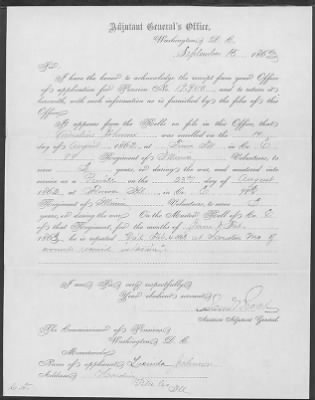 Adjutant General's Office,
Washington, D. C.
September 15, 186
Sir:
I have the honor to acknowledge the receipt from your Office
of application for Pension No. and to return it
herewith, with such information as is furnished by the files of this
Office.
It appears from the Rolls on file in this Office, that
was enrolled on the 14
day of August 1862, at Ill in Co. E
99 Regiment of Illinois Volunteers, to
serve 3 years, or during the war, and was mustered into
service as a Private on the 23rd day of August
1862, at Ill, in Co. E, 99th
Regiment of Illinois Volunteers, to serve 3
years, or during the war. On the Muster Roll of Co. E
of that Regiment, for the months of Jan & Feb,
186 he is reported Mo of
wounds received in action
I am Sir, very respectfully,
Your obedient servant,
Assistant Adjutant General.
The Commissioner of Pensions,
Washington, D. C.
Memoranda:
Name of applicant, Lucinda Johnson
Address,
Pike Co
Ill